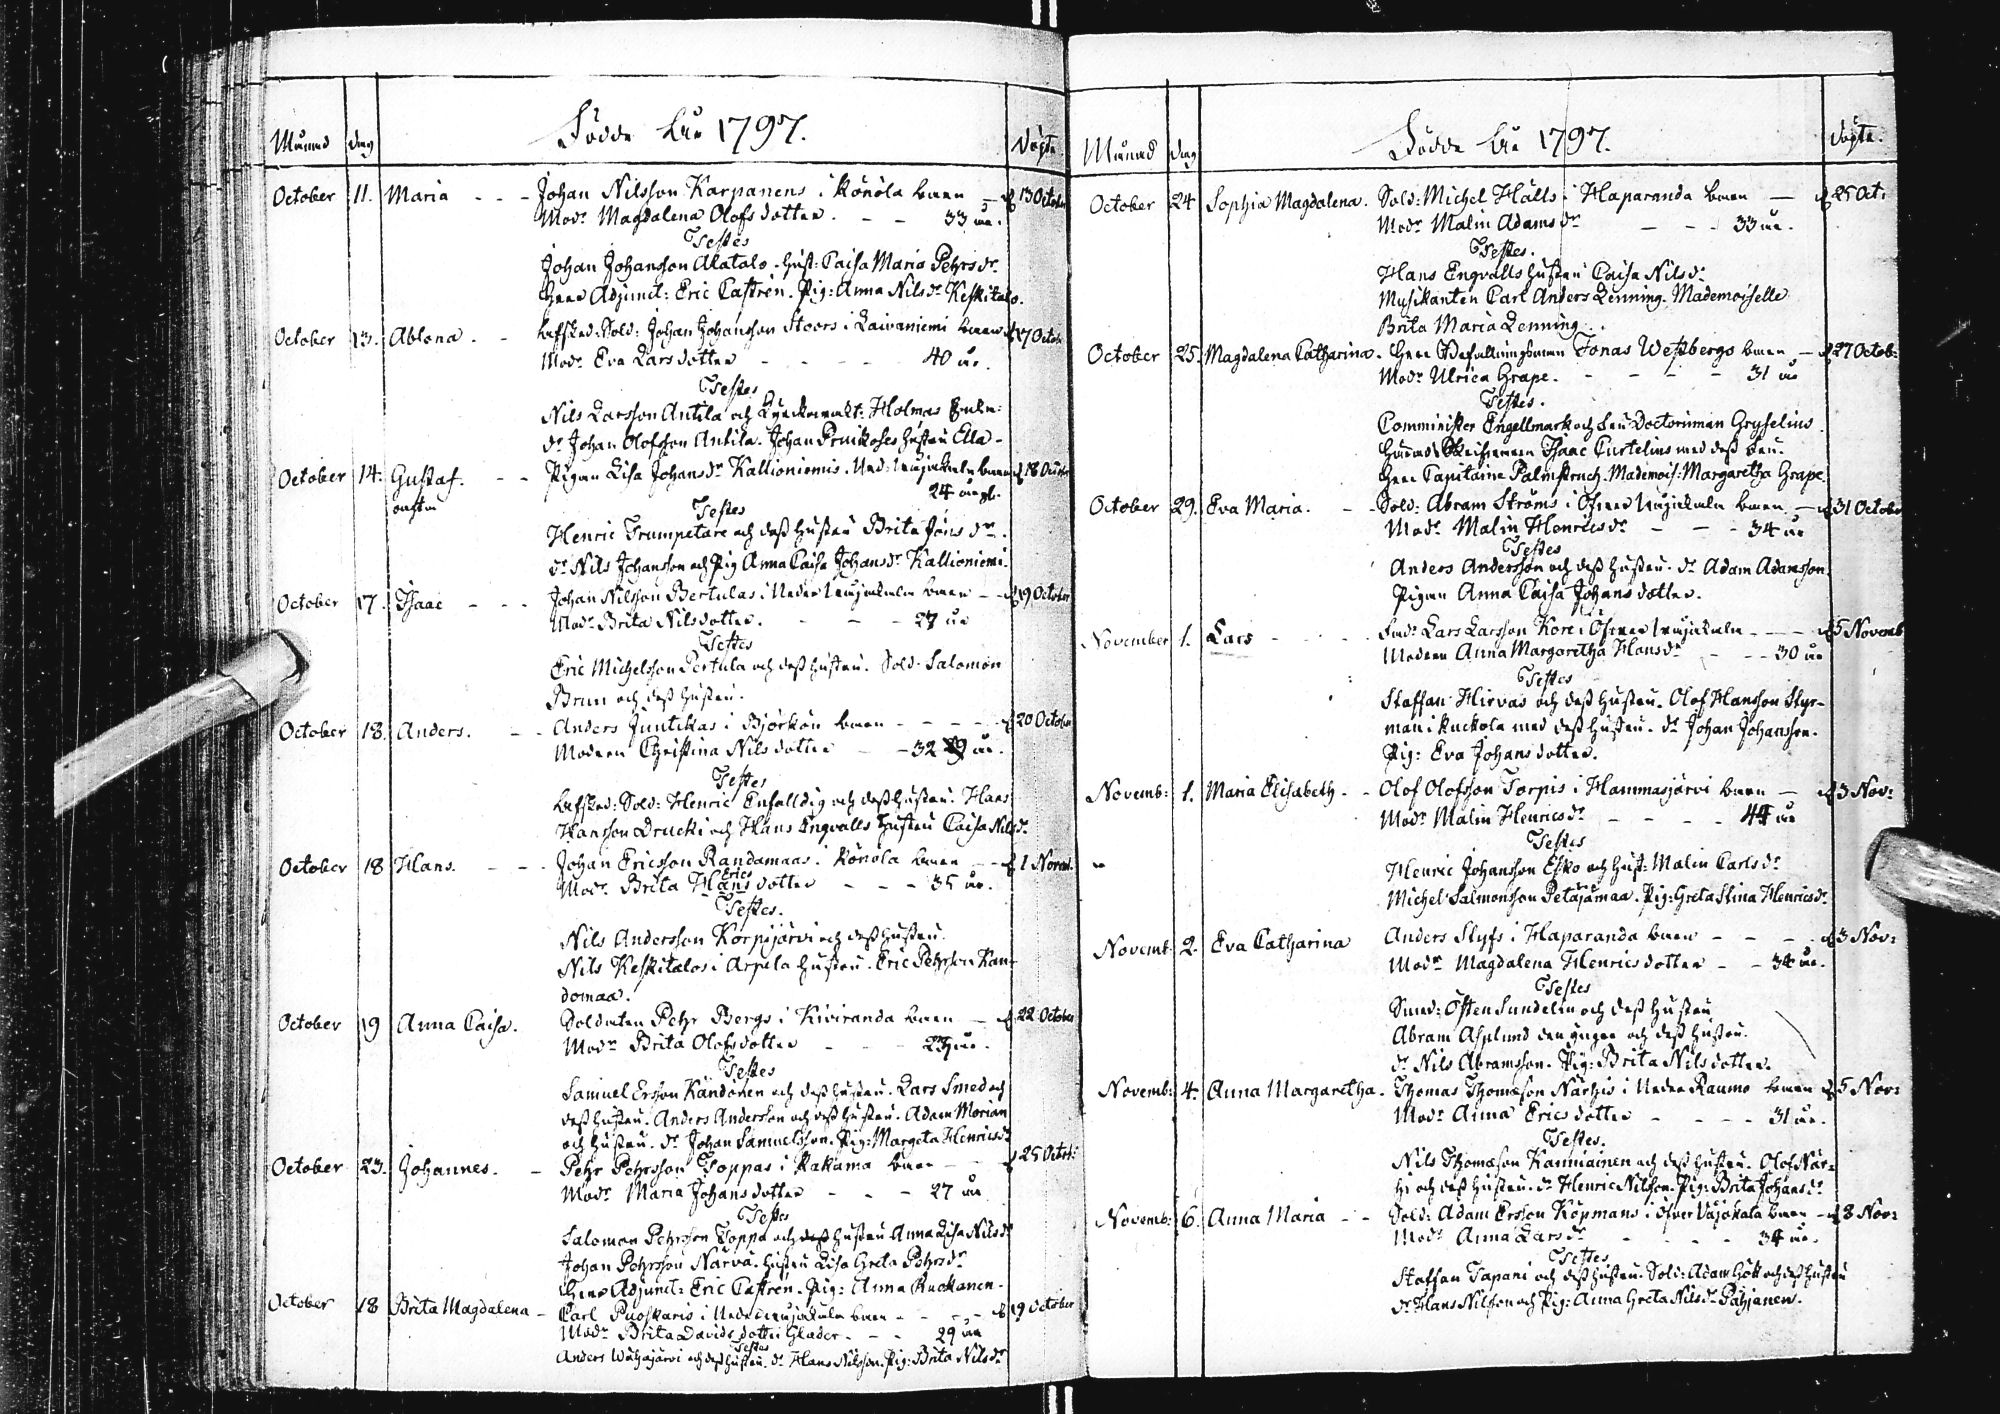 Månad dag Födde åhr 1797. Döpte
October 11. Maria - - - Johan Nilsson Karpanens i Könöla barn - d 13 October
Modr Magdalena Olofsdotter. - - 33 år.
Testes
Johan Johansson Alatalo. Hust: Caisa Maria Pehrsdr
Herr Adjunct: Eric Castrén. Pig: Anna Nilsdr Keskitalo.
October 13. Ablona. - Afsked: Sold: Johan Johansson Stoors i Laivaniemi barn d 17 Octob:
Modr Eva Larsdotter - - - - 40 år.
Testes
Nils Larsson Antila och Holmas
dr Johan Olofsson Antila. Johan hustru Ella -
October 14. Gustaf. - - Pigan Lisa Johansdr Kallioniemis. Ned: barn d 18 October
oächta 24 år gl.
Testes
Henric Trumpetare och dess hustru Brita Jönsdr.
dr Nils Johansson och Pig Anna Caisa Johansdr Kallioniemi.
October 17. Isaac - - - Johan Nilsson Bertulas i Neder barn - - d 19 October
Modr Brita Nilsdotter. - - - 27 år
Testes
Eric Michelsson Pertula och dess hustru. Sold: Salomon
Brun och dess hustru.
October 18. Anders. - - Anders Juntikas i Björkön barn - - - - d 20 October
Modren Christina Nilsdotter - - 32 år.
Testes
Afsked: Sold: Henric Enfalldig och dess hustru. Hans
Hansson Drucki och Hans Engvalls hustru Caisa Nilsdr
October 18 Hans. - - - Johan Ericsson Randamaas i Könöla barn - - d 1 Novem.
Erics
Modr Brita Hansdotter - - - 35 år.
Testes.
Nils Andersson Korpijärvi och dess hustru.
Nils Keskitalos i Arpela hustru. Eric Pehrsson Ran-
domaa.
October 19 Anna Caisa. Soldaten Pehr Bergs i Kiviranda barn - d 22 October
Modr Brita Olofsdotter - - - 23 år.
Testes
Samuel Ersson Kändönen och dess hustru. Lars Smed och
dess hustru. Anders Andersson och dess hustru. Adam Morian
och hustru. dr Johan Samuelsson. Pig: Margeta Henricsdr
October 23. Johannes. - Pehr Pehrsson Toppas i Kakama barn - - d 25 Octob:
Modr Maria Johansdotter - - - 27 år
Testes
Salomon Pehrsson Toppa och dess hustru Anna Lisa Nilsdr
Johan Pehrsson Narva. hustru Lisa Greta Pehrsdr
Herr Adjunct: Eric Castrén. Pig: Anna Ruokanen.
October 18 Brita Magdalena - Carl Puoskaris i Neder barn - - - d 19 October
Modr Brita Davidsdotter Glader. - - 29 år
Testes
Anders Wähäjärvi och dess hustru. dr Hans Nilsson. Pig: Brita Nilsdr
Månad dag Födde åhr 1797. Döpte.
October 24 Sophia Magdalena. Sold: Michel Hälls i Haparanda barn - d 25 Oct:
Modr Malin Adamsdr - - - 33 år.
Testes.
Hans Engvalls hustru Caisa Nilsdr
Musikanten Carl Anders Lenning. Mademoiselle
Brita Maria Lenning.
October 25. Magdalena Catharina. Herr Befallningsman Jonas Westbergs barn - d 27 Octob:
Modr Ulrica Grape. - - - - 31 år
Testes.
Comminister Engellmark och Fru Doctorinnan Gryselius
Isaac Curtelius med dess Fru.
Herr Capitaine Palmstruch. Mademois: Margaretha Grape.
October 29. Eva Maria. - - Sold: Abram Ströms i Öfver barn - d 31 October
Modr Malin Henricsdr - - - 34 år
Testes
Anders Andersson och dess hustru. dr Adam Adamsson.
Pigan Anna Caisa Johansdotter.
November 1. Lars - - - - Lars Larsson Kore i Öfver - - - d 5 Novemb
Modren Anna Margaretha Hansdr - - - 30 år
Testes
Staffan Hirvas och dess hustru. Olof Hansson Styr-
man i Kuckola med dess hustru. dr Johan Johansson.
Pig: Eva Johansdotter.
Novemb: 1. Maria Elisabeth - - Olof Olofsson Torpis i Hammasjärvi barn - d 3 Nov:
Modr Malin Henricsdr - - - - 44 år
Testes
Henric Johansson Esko och Hust: Malin Carlsdr
Michel Salmonsson Petäjämaa. Pig: Greta Stina Henricsdr
Novemb: 2. Eva Catharina Anders Slyfs i Haparanda barn - - - - d 3 Nov:
Modr Magdalena Henricsdotter - - 34 år.
Testes
Östen Sundelin och dess hustru
Abram Asplund den yngre och dess hustru.
dr Nils Abramsson. Pig: Brita Nilsdotter.
Novemb: 4. Anna Margaretha. Thomas Thomæson Närhis i Neder Raumo barn d 5 Nov:
Modr Anna Ericsdotter - - - - 31 år.
Testes.
Nils Thomæson Kanniainen och dess hustru. Olof När-
hi och dess hustru. dr Henric Nilsson. Pig: Brita Johansdr
Novemb: 6. Anna Maria - - Sold: Adam Ersson Köpmans i Öfver Vojakala barn - d 8 Nov:
Modr Anna Larsdr - - - - 34 år.
Testes
Staffan Tapani och dess hustru. Sold: Adam Gök och dess hustru
dr Hans Nilsson och Pig: Anna Greta Nilsdr Pähjänen.